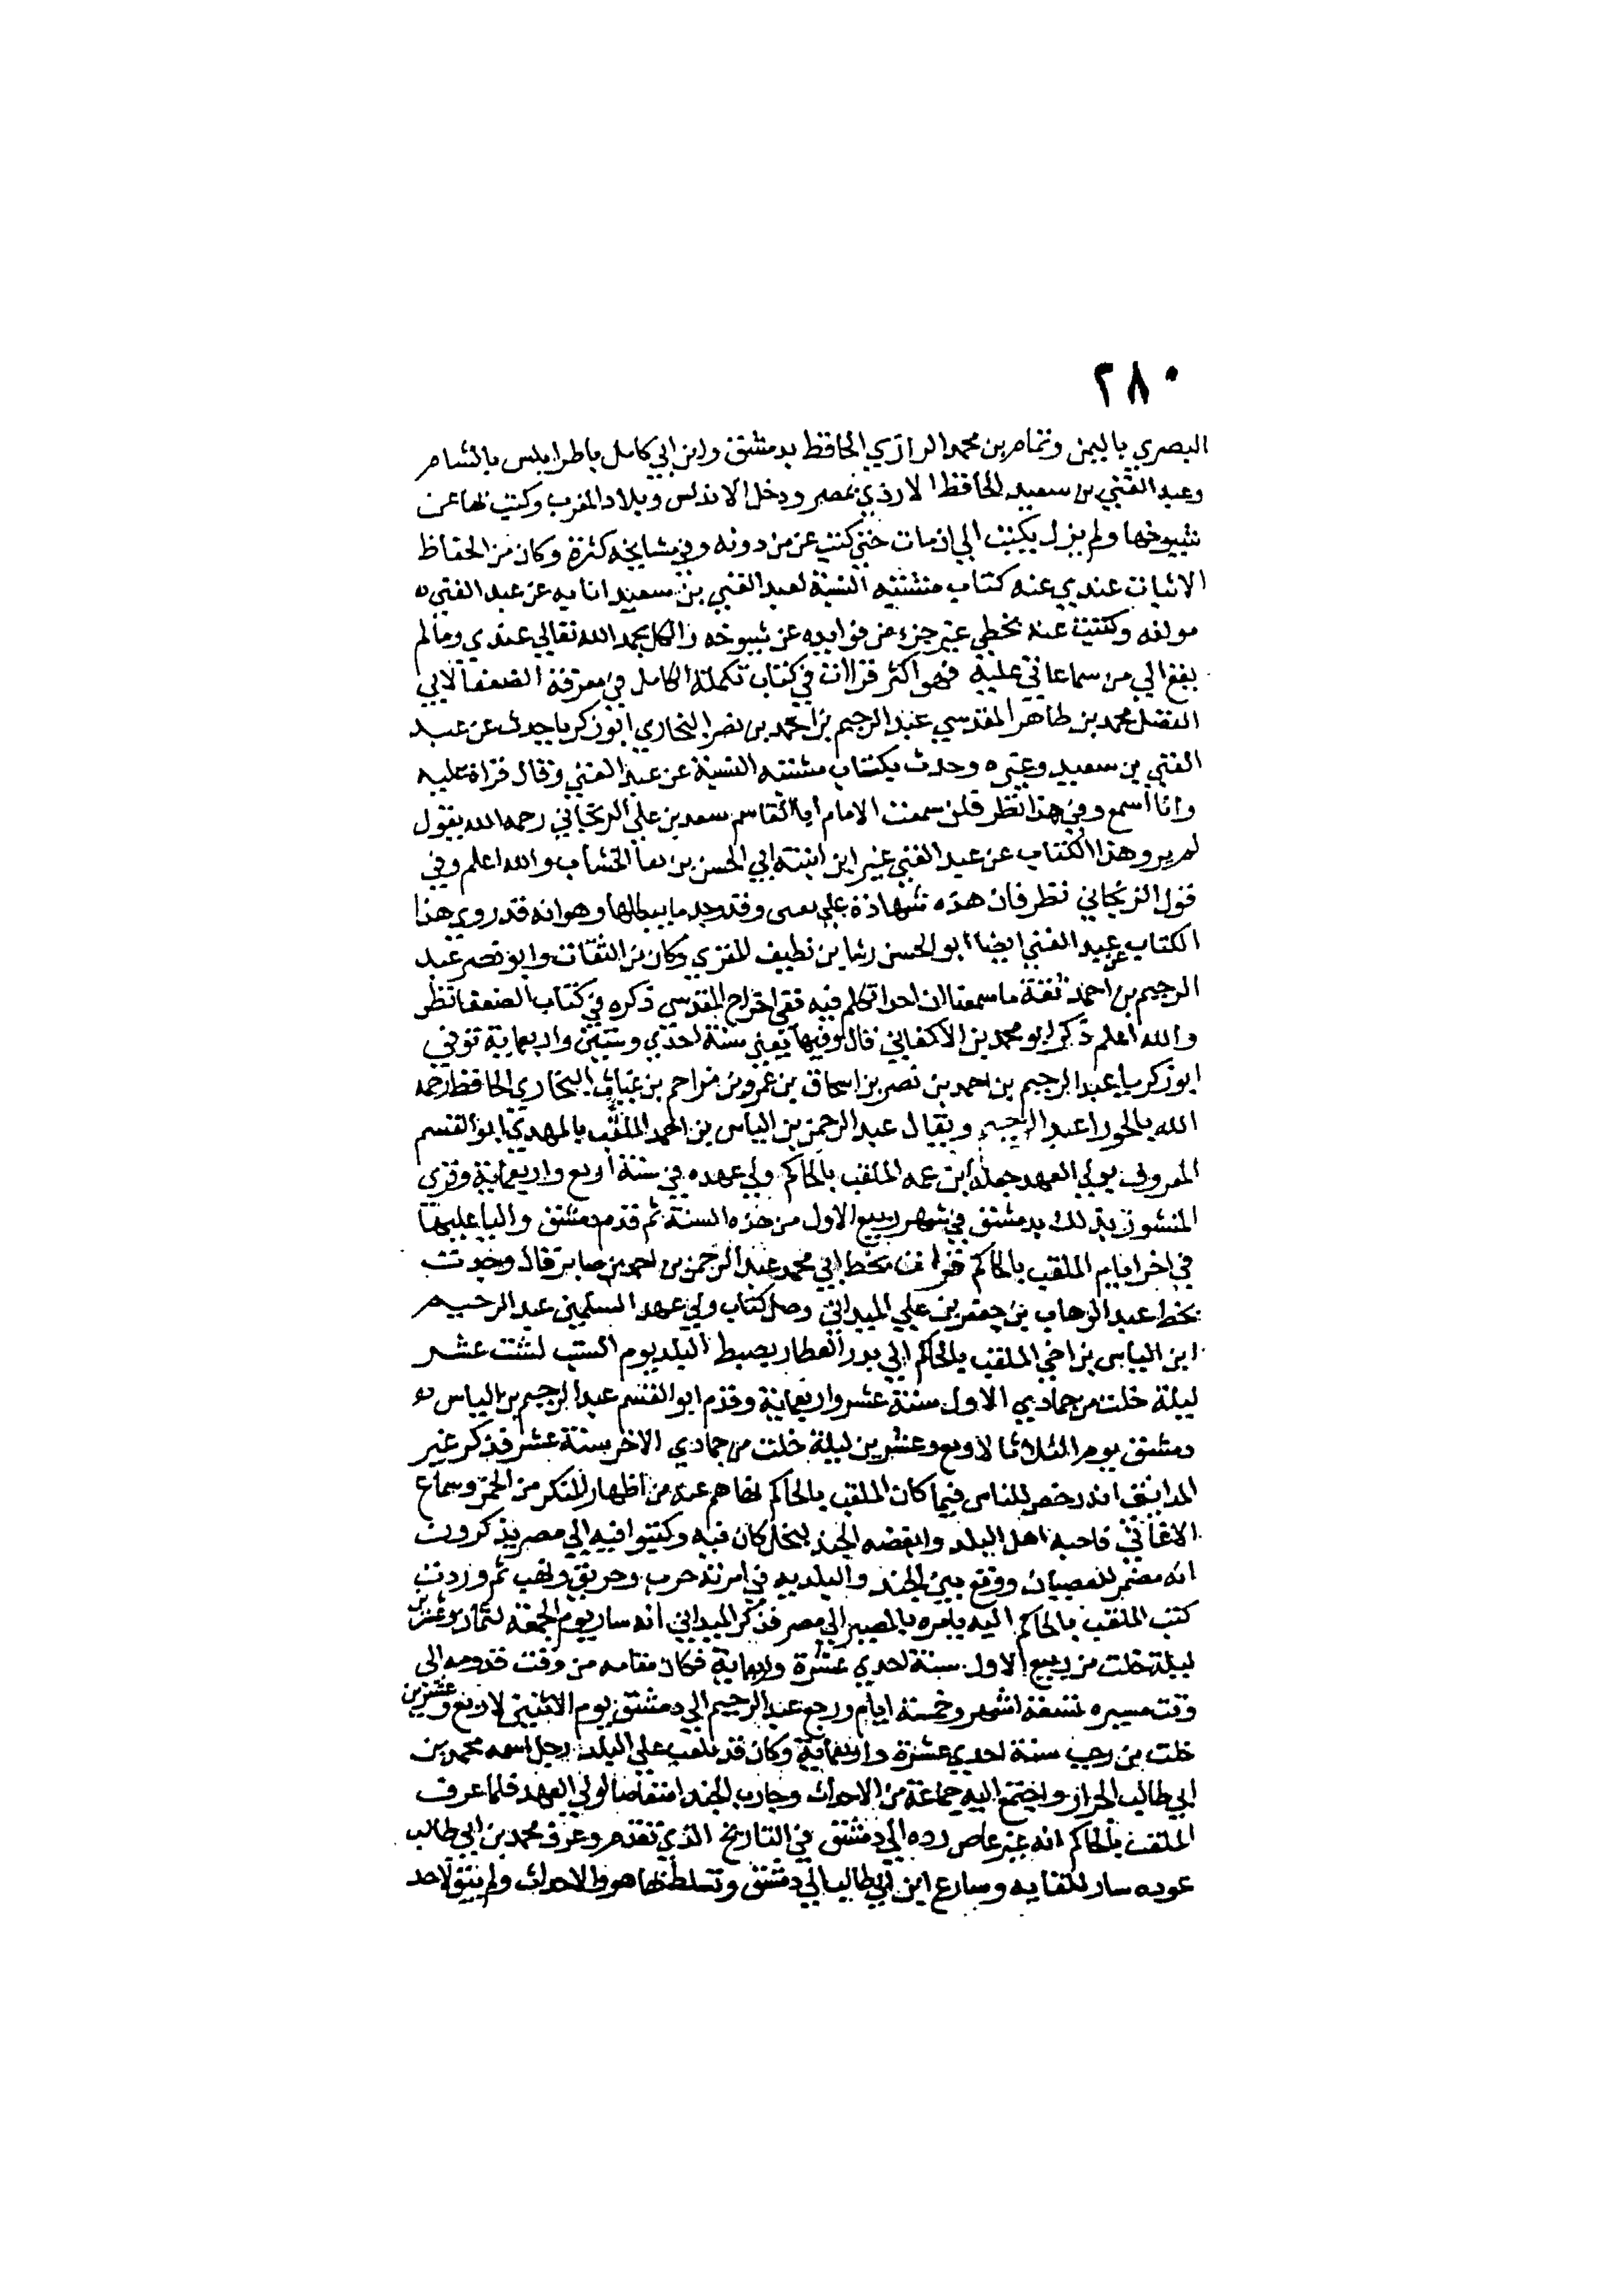 ٢٨٠
البصري باليمن وتمام بن محمد الرازي الحافظ بدمشق وابن ابي كامل باطرابلس بالشام
وعبد الغني بن سعيد الحافظ الازدي بمصر ودخل الاندلس وبلاد المغرب وكتب بها عن
شيوخها ولم يزل يكتب الي ان مات حتي كتب عن من دونه وفي مشايخه كثرة وكان من الحفاظ
الاثبات عندي عنه كتاب مشتبه النسبة لعبد الغني بن سعيد انا به عن عبد الغني
مولفه وكتبت عنه بخطي غير جزء من فوايده عن شيوخه ذا الكل بحمد الله تعالي عندي وما لم
يقع الي من سماعاتي عليه فهو اكثر قرات في كتاب تكملة الكامل في معرفة الضعفا لابي
الفضل محمد بن طاهر المقدسي عبد الرحيم بن احمد بن نصر البخاري ابو زكريا حدث عن عبد
الغني بن سعيد وغيره وحدث بكتاب مشتبه النسبة عن عبد الغني وقال قراة عليه
وانا اسمع وفي هذا نظر قلت سمعت الامام ابا القاسم سعد بن علي الزنجاني رحمه الله يقول
لم يرو هذا الكتاب عن عبد الغني غير ابن ابنته ابي الحسن بن بقا الخشاب والله اعلم وفي
قول الزنجاني نظر فان هذه شهادة علي نفي وقد وجد ما يبطلها وهو انه قد روي هذا
الكتاب عن عبد الغني ايضا ابو الحسن رشا بن نظيف المقري وكان من الثقات وابو نصر عبد
الرحيم بن احمد ثقة ما سمعنا ان احدا تكلم فيه ففي اخراج المقدسي ذكره في كتاب الضعفا نظر
والله اعلم ذكر ابو محمد بن الاكفاني قال وفيها يعني سنة احدي وستين واربعماية توفي
ابو زكريا عبد الرحيم بن احمد بن نصر بن اسحاق بن عمرو بن مزاحم بن غياث البخاري الحافظ رحمه
الله بالحورا عبد الرحيم ويقال عبد الرحمن بن الياس بن احمد الملقب بالمهدي ابو القسم
المعروف بولي العهد جعله ابن عمه الملقب بالحاكم ولي عهده في سنة اربع واربعماية وقري
المنشور بذلك بدمشق في شهر ربيع الاول من هذه السنة ثم قدم دمشق واليا عليها
في اخر ايام الملقب بالحاكم قرات بخط ابي محمد عبد الرحمن بن احمد بن صابر قال وجدت
بخط عبد الوهاب بن جعفر بن علي الميداني وصل كتاب ولي عهد المسلمين عبد الرحيم
ابن الياس بن اخي الملقب بالحاكم الي بدر العطار بضبط البلد يوم السبت لست عشر
ليلة خلت من جمادي الاول سنة عشر واربعماية وقدم ابو القسم عبد الرحيم بن الياس
دمشق يوم الثلاثا لاربع وعشرين ليلة خلت من جمادي الاخر سنة عشر فذكر غير
الميداني انه رخص للناس فيما كان الملقب بالحاكم نهاهم عنه من اظهار المنكر من الخمر وسماع
الاغاني فاحبه اهل البلد وابغضه الجند لبخل كان فيه وكتبوا فيه الي مصر يذكرون
انه مضمر للعصيان ووقع بين الجند والبلديه في امرته حرب وحريق ونهب ثم وردت
كتب الملقب بالحاكم اليه يامره بالمصير الي مصر فذكر الميداني انه سار يوم الجمعة لثمان وعشرين
ليلة خلت من ربيع الاول سنة احدي عشرة واربعماية فكان مقامه من وقت قدومه الي
وقت مسيره تسعة اشهر وخمسة ايام ورجع عبد الرحيم الي دمشق يوم الاثنين لاربع وعشرين
خلت من رجب سنة احدي عشرة واربعماية وكان قد تغلب علي البلد رجل اسمه محمد بن
ابي طالب الجزار واجتمع اليه جماعة من الاحداث وحارب الجند انتقاضا لولي العهد فلما عرف
الملقب بالحاكم انه غير عاص رده الي دمشق في التاريخ الذي تقدم وعرف محمد بن ابي طالب
عوده سار للقايه وسارع ابن ابي طالب الي دمشق وتسلط بها هو والاحداث ولم يبق لاحد